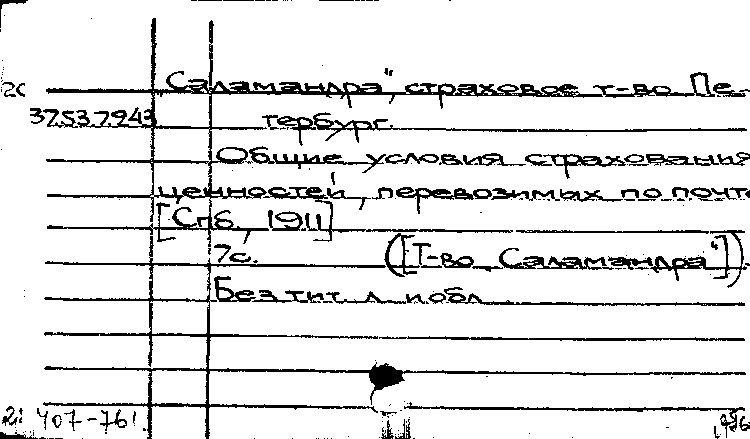 „Саламандра", страховое т-во Пе-
37.53.7.943 тербург.
Общие условия страхования
ценностей, перевозимых по почте
[Спб, 1911]
7с. ([Т-во „Саламандра"]).
Без тит. л. и обл.
407-761